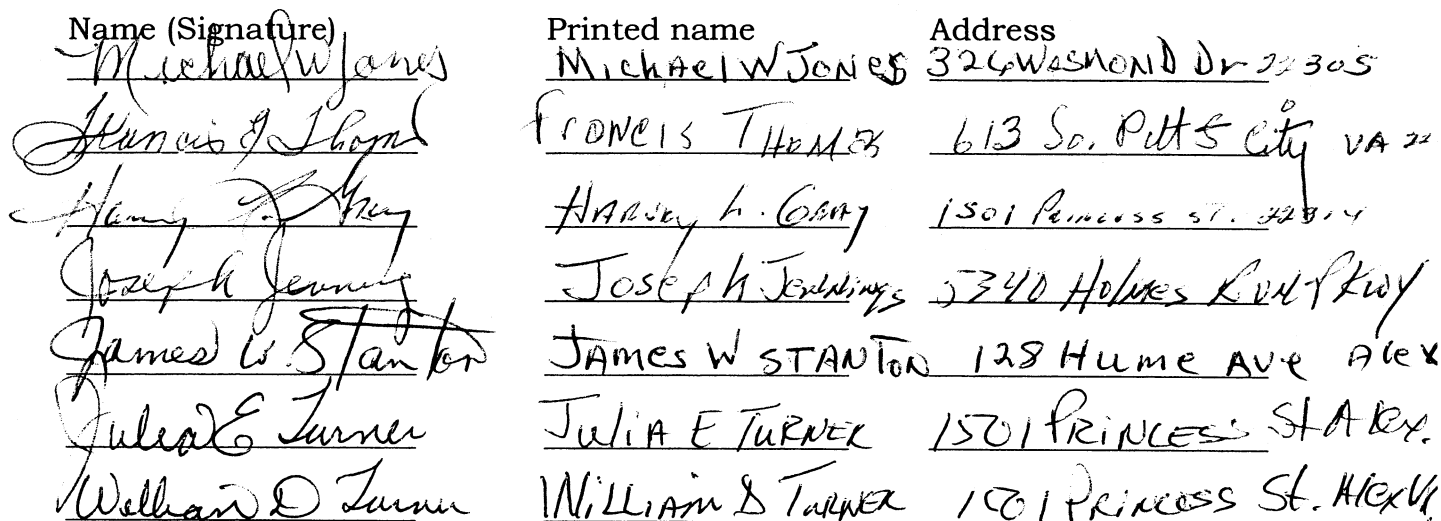 Name (Signature) Printed name Address
Michael W Jones Michael W Jones 326 Wesmond Dr 22305
Francis J Thomas Francis Thomas 613 So. Pitt St City VA 22
Harvey L. Gray Harvey L. Gray 1501 Princess St. 22314
Joseph Jennings Joseph Jennings 5340 Holmes Run Pkwy
James W. Stanton James W STANTON 128 Hume Ave Alex
Julia E Turner Julia E TURNER 1501 PRINCESS St Alex.
William D Turner William D TURNER 1501 PRINCESS St. Alex VA